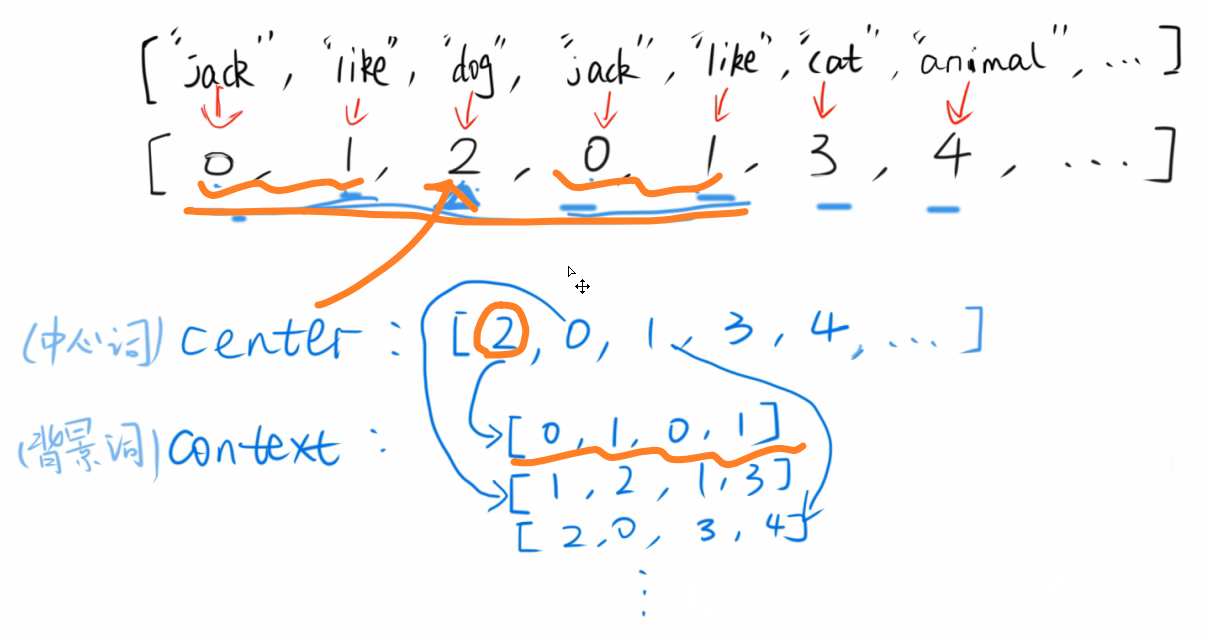 ["jack", "like", "dog", "jack", "like", "cat", "animal", ...]
[0, 1, 2, 0, 1, 3, 4, ...]
(中心词) center: [2, 0, 1, 3, 4, ...]
(背景词) context: [0, 1, 0, 1]
[1, 2, 1, 3]
[2, 0, 3, 4]